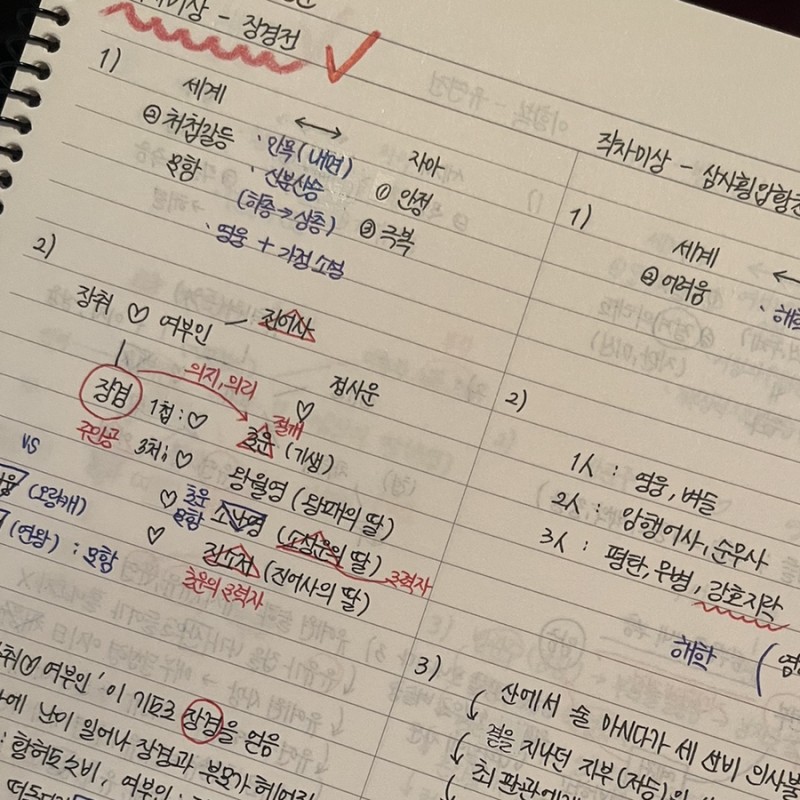 작자미상 - 장경전
1)
세계 ↔ 자아
② 처첩갈등 · 인목(내면) ① 안정
모함 · 신분상승 ③ 극복
(하층→상층)
· 영웅 + 가정 소설
2)
장취 ♡ 여부인 - 진어사
의지, 의리
장경 1첩 : ♡ 초운 (기생) 절개
정사운
♡
주인공 3처 ; ♡ 왕월영 (왕패의 딸)
vs
(오랑캐) ♡ 초운 모함 소난영 (소상운의 딸) 조력자
(연왕) : 모함 ♡ 진소저 (진어사의 딸)
초운의 조력자
♡ 여부인'이 기도로 장경을 얻음
난이 일어나 장경과 부모가 헤어짐
여부인 :
작자미상 - 삼사횡입황천
1)
세계 ↔
② 어려움
2)
1人 : 영웅, 버들
2人 : 암행어사, 순무사
3人 : 평탄, 무병, 강호지락
해학
3)
산에서 술 마시다가 세 선비 의사불
곁을 지나던 지부(저승)의
최 판관에게